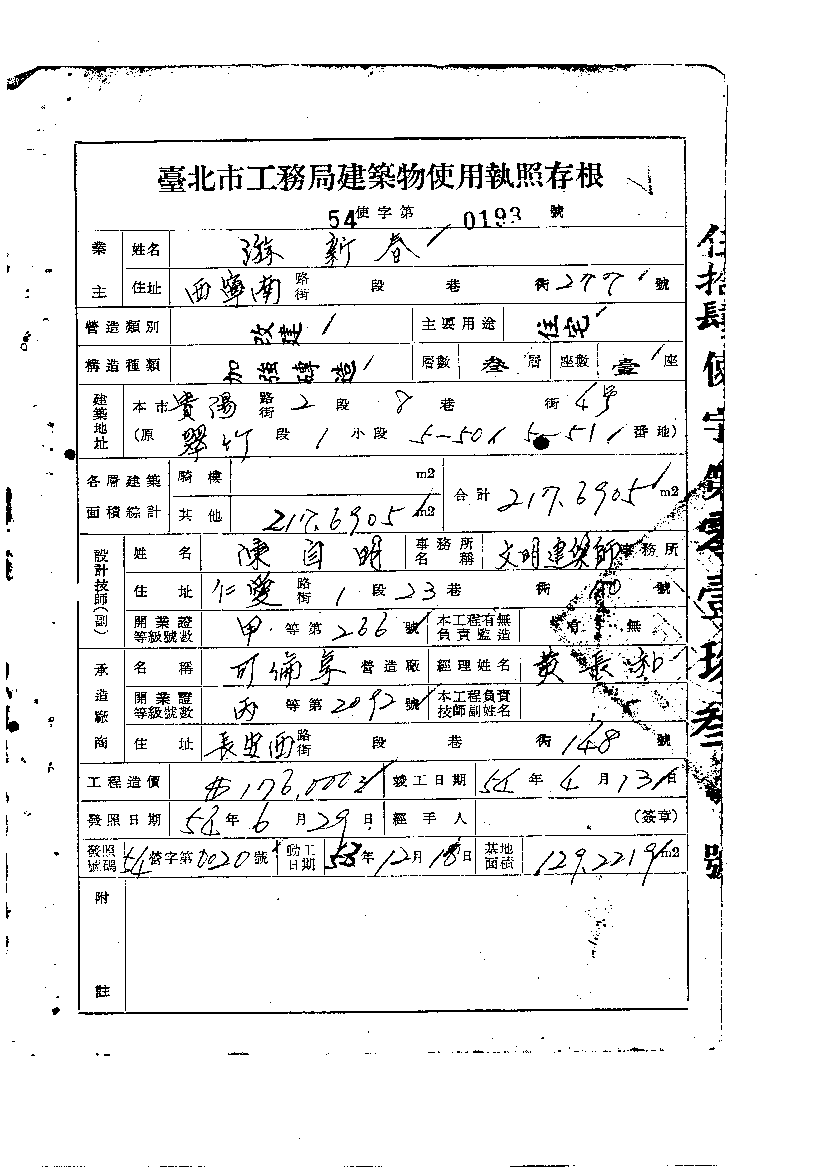 臺北市工務局建築物使用執照存根
54使字第 0193 號
業主 姓名 游新春
住址 西寧南路街 段 巷 街 277 號
營造類別 改建 主要用途 住宅
構造種類 加強磚造 層數 叁層 座數 壹座
建築地址 本市貴陽路街 2 段 8 巷 街 4号
(原 翠竹 段 1 小段 5-50 5-51 番地)
各層建築面積綜計 騎樓 m2 合計 217.6905 m2
其他 217.6905 m2
設計技師(副) 姓名 陳 明 事務所名稱 文明建築師事務所
住址 仁愛路街 1 段 23 巷 街 號
開業證等級號數 甲等第 266 號 本工程有無負責監造 有 無
承造廠商 名稱 營造廠 經理姓名 黃長
開業證等級號數 丙等第 2092 號 本工程負責技師副姓名
住址 長安西路街 段 巷 街 148 號
工程造價 176,000 竣工日期 54年4月13日
發照日期 54年6月29日 經手人 (簽章)
發照號碼 54營字第0020號 動工日期 53年12月18日 基地面積 129.2219 m2
附註
伍拾肆使字第零壹玖叁號